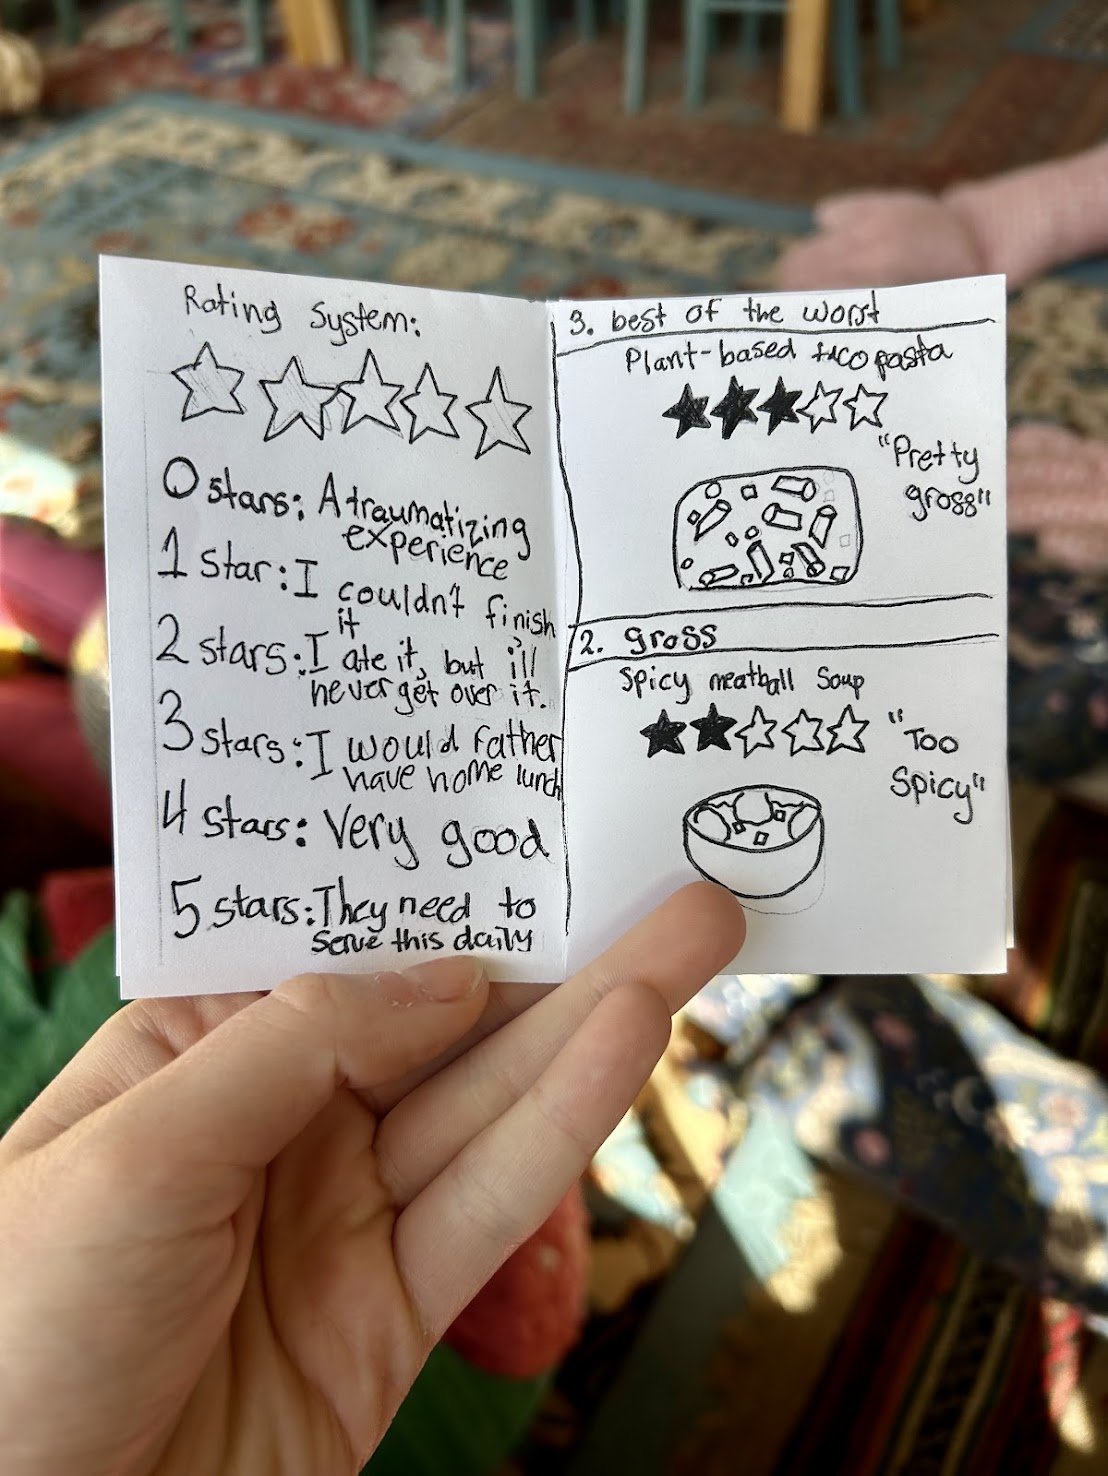 Rating System:
0 stars: A traumatizing
experience
1 star: I couldn't finish
it
2 stars: I ate it, but i'll
never get over it.
3 stars: I would rather
have home lunch
4 stars: Very good
5 stars: They need to
serve this daily
3. best of the worst
Plant-based taco pasta
"Pretty
gross"
2. gross
Spicy meatball Soup
"Too
Spicy"